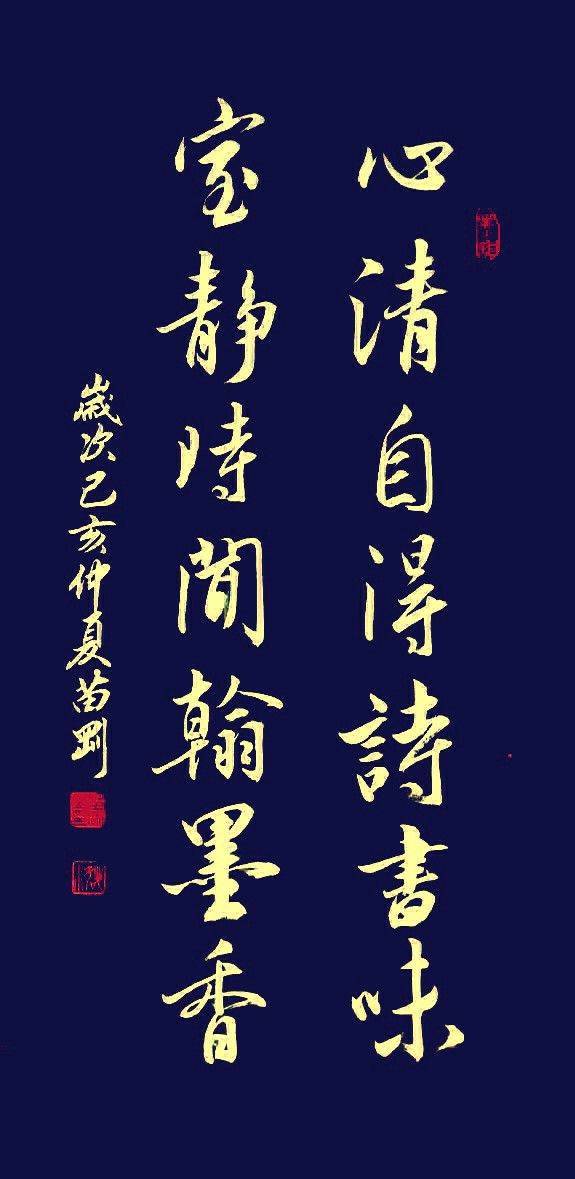 心清自得詩書味
室靜時聞翰墨香
歲次己亥仲夏苗剛